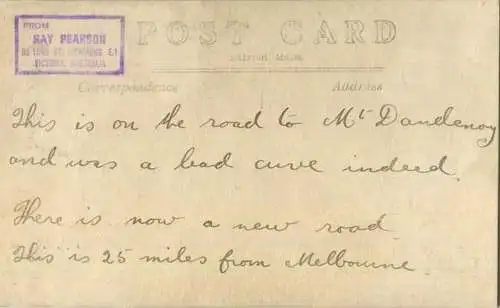 FROM
RAY PEARSON
VICTORIA, AUSTRALIA
POST CARD
Correspondence Address
This is on the road to Mt Dandenog
and was a bad curve indeed.
There is now a new road
This is 25 miles from Melbourne